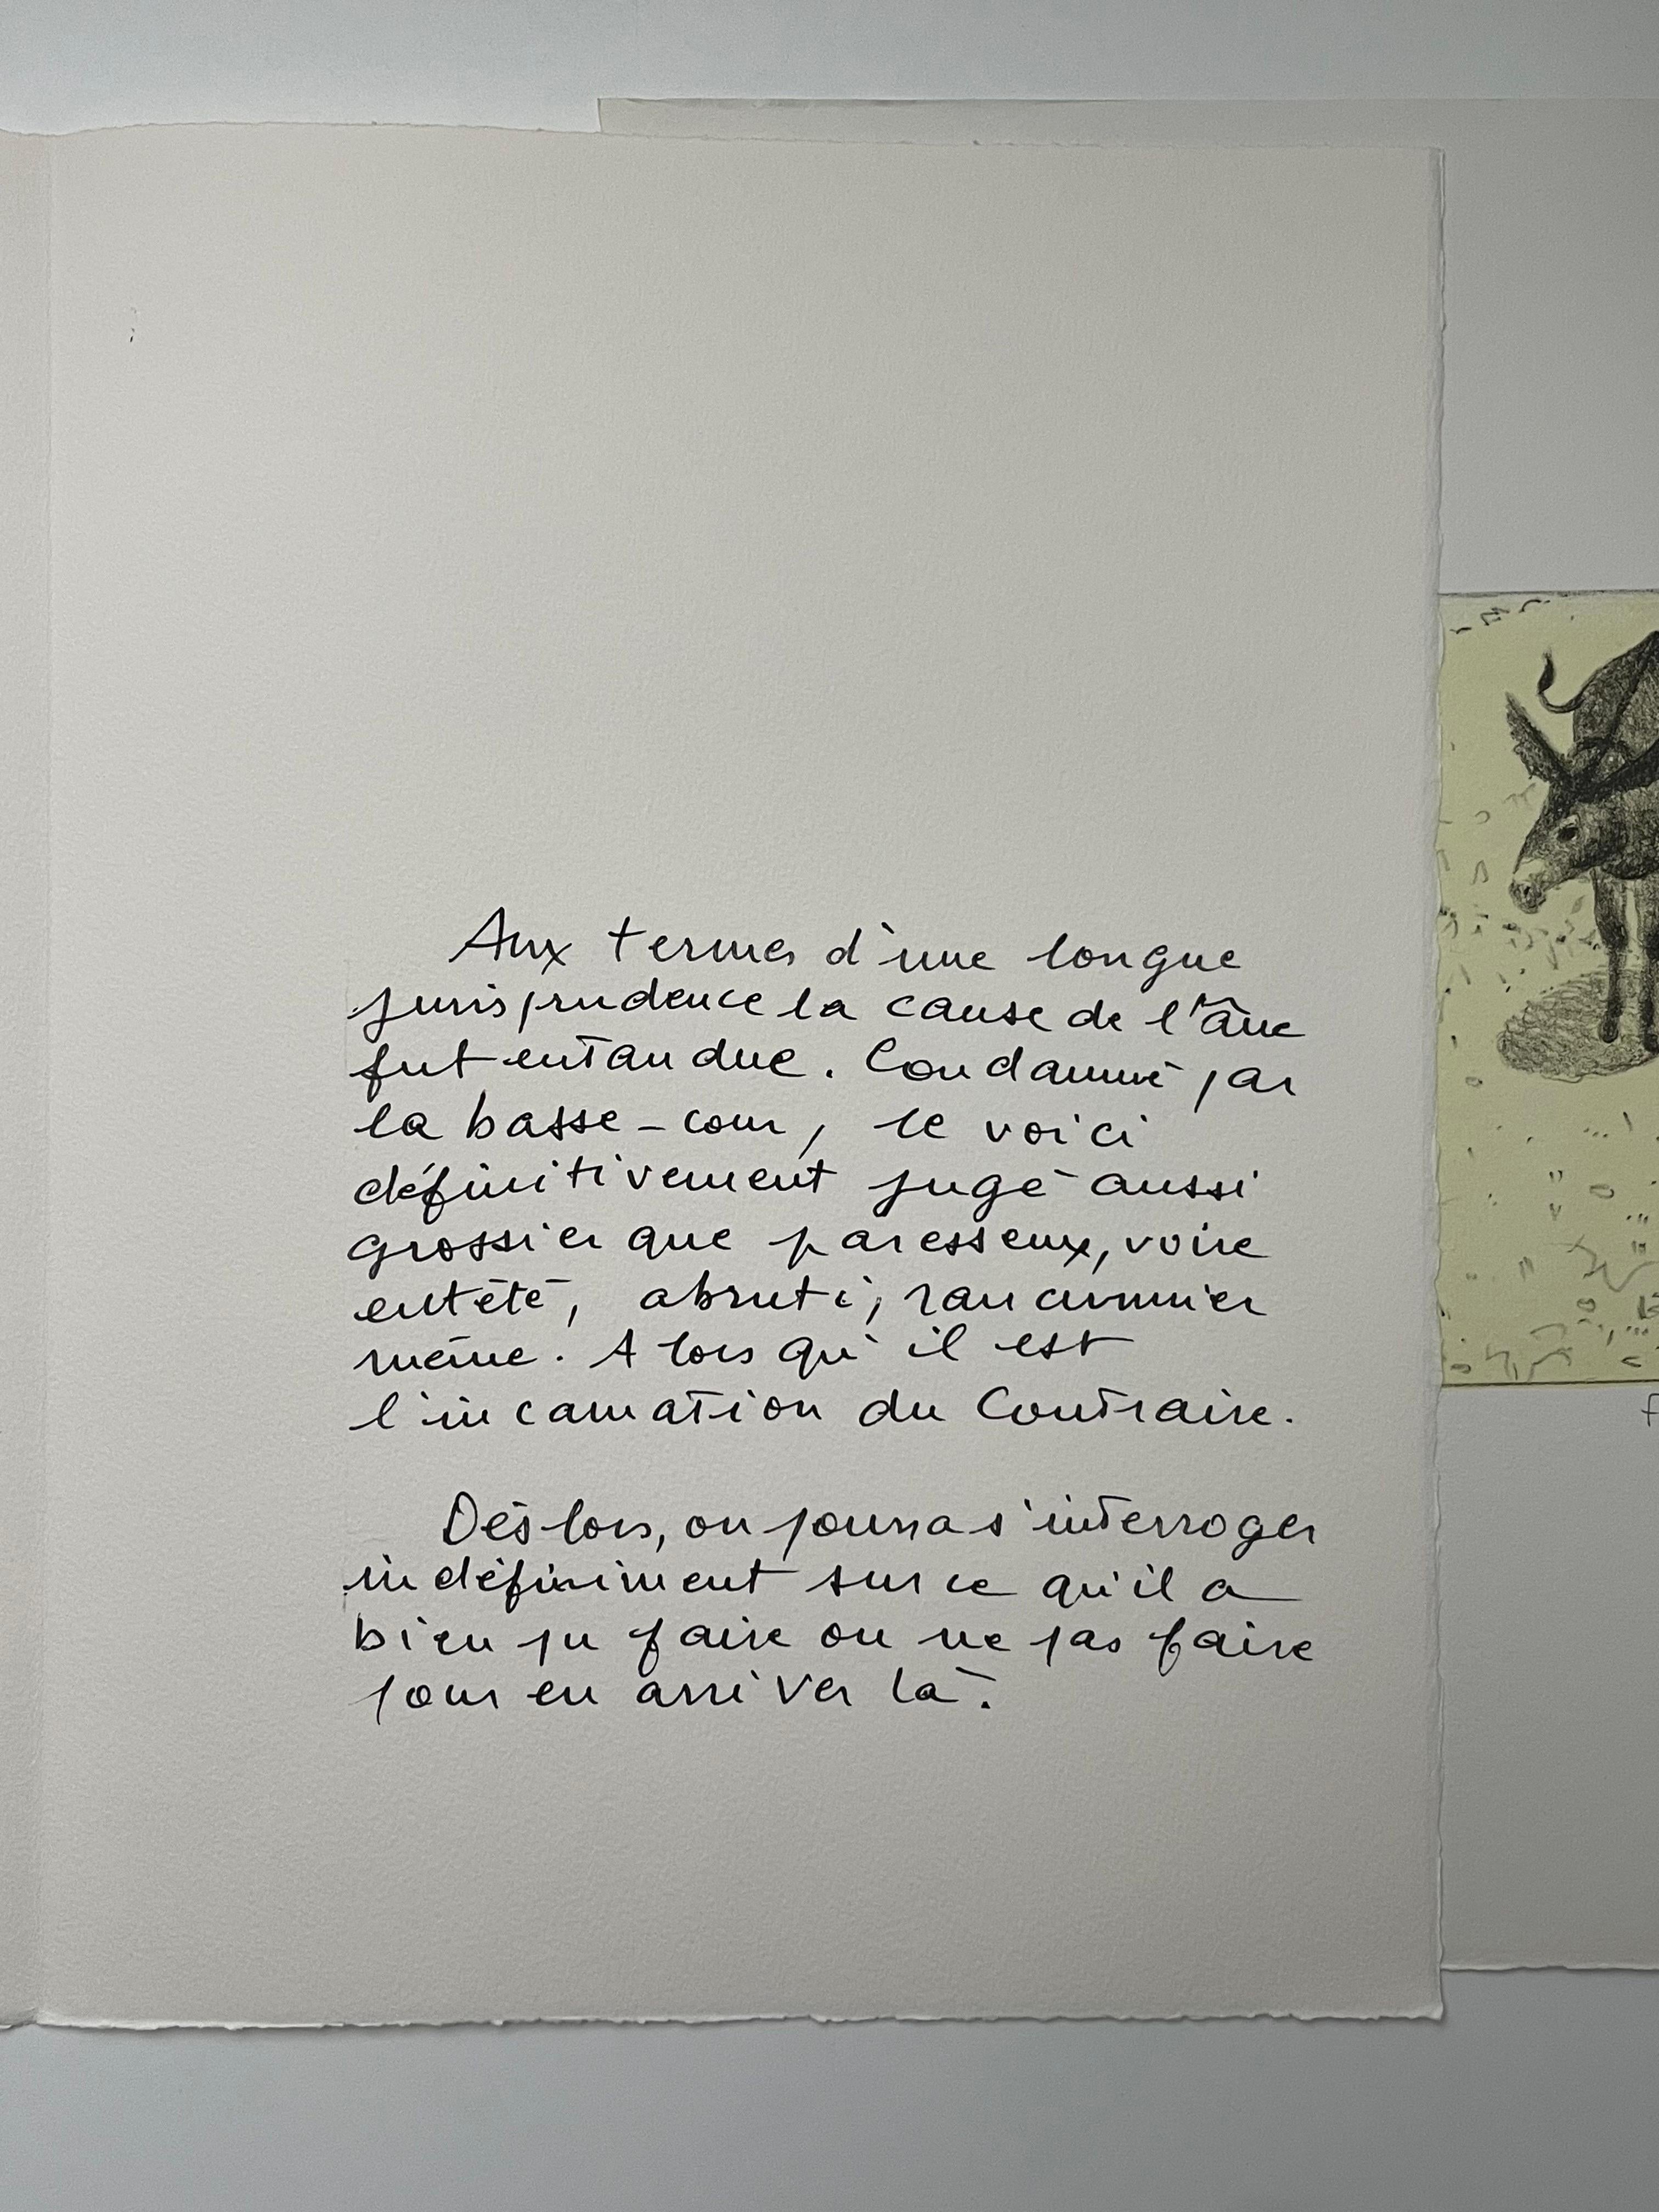 Aux termes d'une longue
jurisprudence la cause de l'âne
fut entandue. Condamné par
la basse-cour, le voici
définitivement jugé aussi
grossier que paresseux, voire
entêté, abruti, rancunier
même. Alors qu'il est
l'incarnation du Contraire.
Dès lors, on pourra s'interroger
indéfiniment sur ce qu'il a
bien pu faire ou ne pas faire
pour en arriver là.